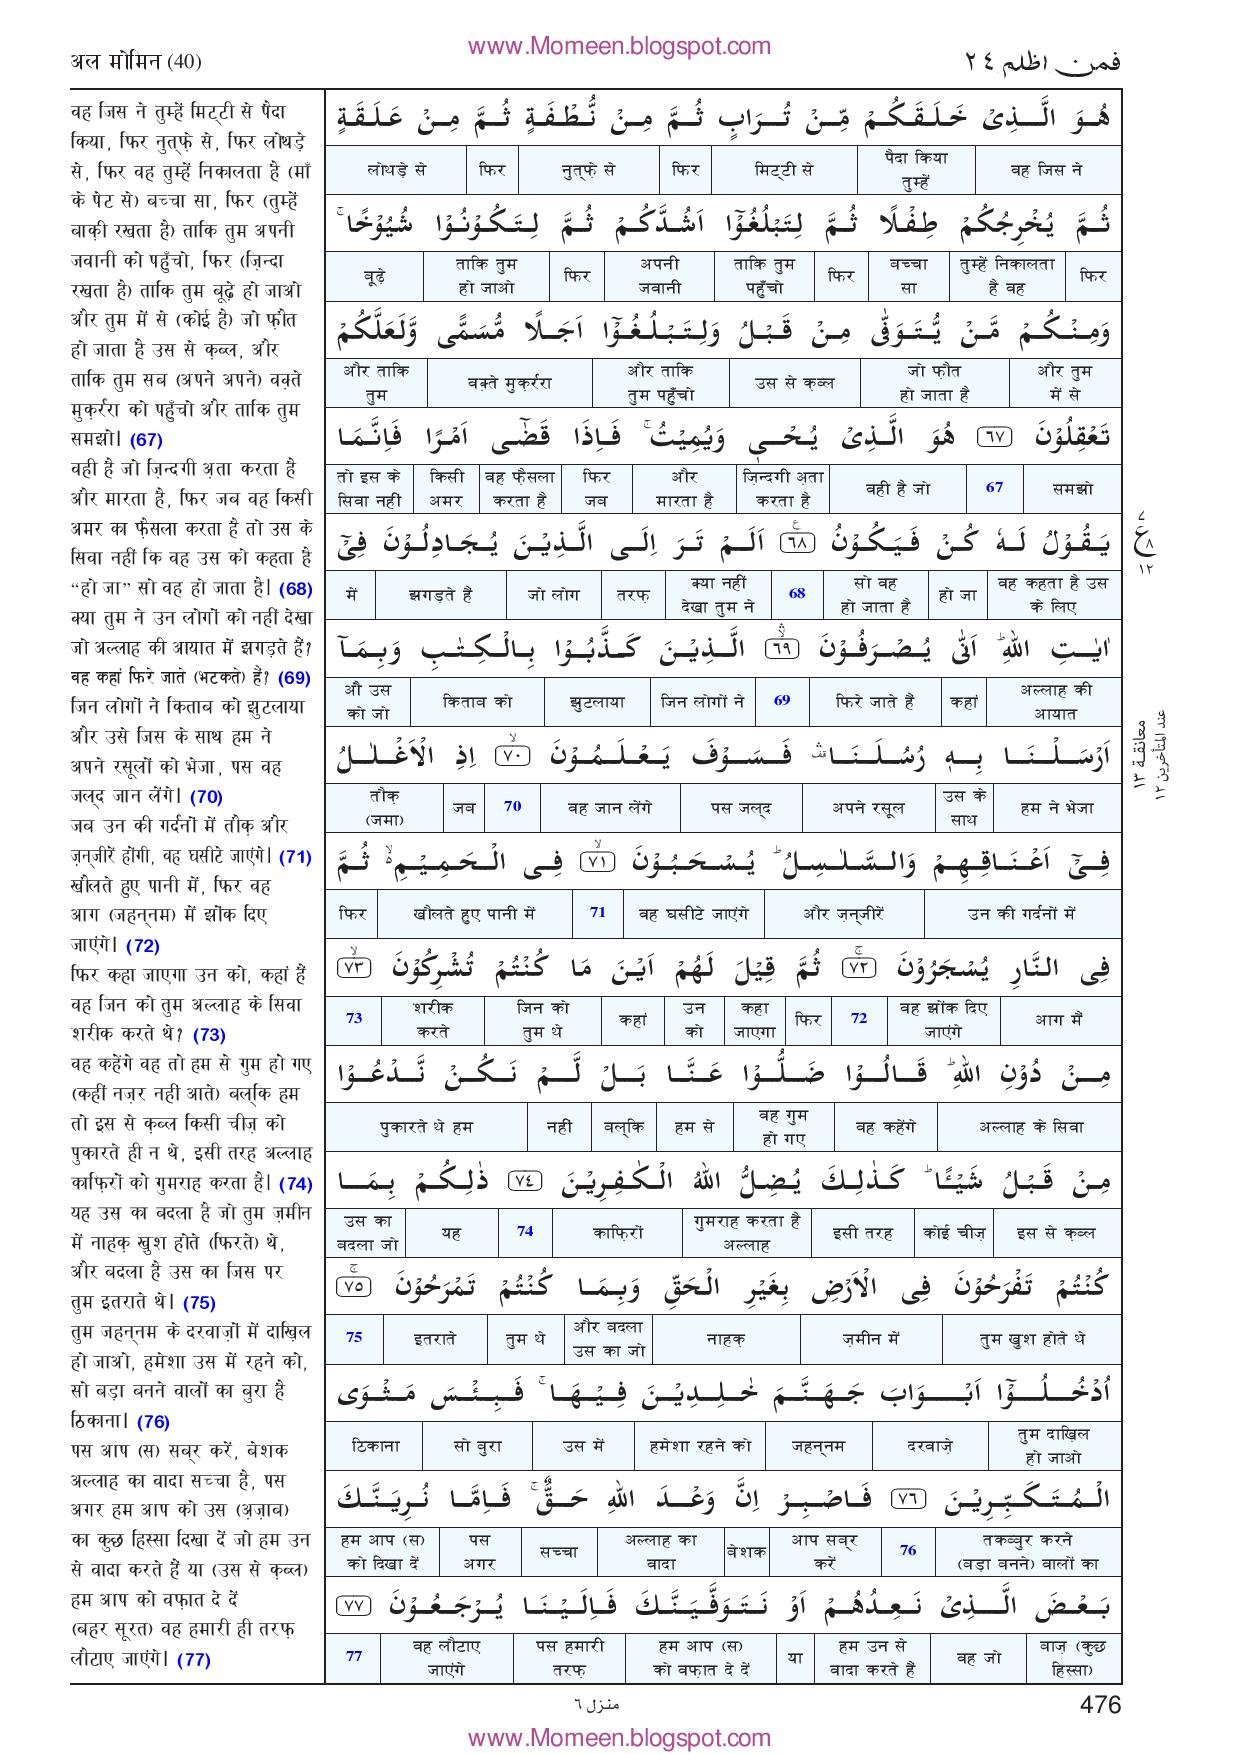 www.Momeen.blogspot.com
अल मोमिन (40)
فمن اظلم ٢٤
वह जिस ने तुम्हें मिट्टी से पैदा
किया, फिर नुत्फ़े से, फिर लोथड़े
से, फिर वह तुम्हें निकालता है (माँ
के पेट से) बच्चा सा, फिर (तुम्हें
बाक़ी रखता है) ताकि तुम अपनी
जवानी को पहुँचो, फिर (ज़िन्दा
रखता है) ताकि तुम बूढ़े हो जाओ
और तुम में से (कोई है) जो फ़ौत
हो जाता है उस से क़ब्ल, और
ताकि तुम सब (अपने अपने) वक़्ते
मुक़र्ररा को पहुँचो और ताकि तुम
समझो। (67)
वही है जो ज़िन्दगी अ़ता करता है
और मारता है, फिर जब वह किसी
अमर का फ़ैसला करता है तो उस के
सिवा नहीं कि वह उस को कहता है
“हो जा” सो वह हो जाता है। (68)
क्या तुम ने उन लोगों को नहीं देखा
जो अल्लाह की आयात में झगड़ते हैं?
वह कहां फिरे जाते (भटकते) हैं? (69)
जिन लोगों ने किताब को झुटलाया
और उसे जिस के साथ हम ने
अपने रसूलों को भेजा, पस वह
जल्द जान लेंगे। (70)
जब उन की गर्दनों में तौक़ और
ज़न्जीरें होंगी, वह घसीटे जाएंगे। (71)
खौलते हुए पानी में, फिर वह
आग (जहन्नम) में झोंक दिए
जाएंगे। (72)
फिर कहा जाएगा उन को, कहां हैं
वह जिन को तुम अल्लाह के सिवा
शरीक करते थे? (73)
वह कहेंगे वह तो हम से गुम हो गए
(कहीं नज़र नहीं आते) बल्कि हम
तो इस से क़ब्ल किसी चीज़ को
पुकारते ही न थे, इसी तरह अल्लाह
काफ़िरों को गुमराह करता है। (74)
यह उस का बदला है जो तुम ज़मीन
में नाहक़ खुश होते (फिरते) थे,
और बदला है उस का जिस पर
तुम इतराते थे। (75)
तुम जहन्नम के दरवाज़ों में दाख़िल
हो जाओ, हमेशा उस में रहने को,
सो बड़ा बनने वालों का बुरा है
ठिकाना। (76)
पस आप (स) सब्र करें, बेशक
अल्लाह का वादा सच्चा है, पस
अगर हम आप को उस (अ़ज़ाब)
का कुछ हिस्सा दिखा दें जो हम उन
से वादा करते हैं या (उस से क़ब्ल)
हम आप को वफ़ात दे दें
(बहर सूरत) वह हमारी ही तरफ़
लौटाए जाएंगे। (77)
هُوَ الَّذِىْ خَلَقَكُمْ مِّنْ تُرَابٍ ثُمَّ مِنْ نُّطْفَةٍ ثُمَّ مِنْ عَلَقَةٍ
लोथड़े से फिर नुत्फ़े से फिर मिट्टी से पैदा किया तुम्हें वह जिस ने
ثُمَّ يُخْرِجُكُمْ طِفْلًا ثُمَّ لِتَبْلُغُوْٓا اَشُدَّكُمْ ثُمَّ لِتَكُوْنُوْا شُيُوْخًا ۚ
बूढ़े ताकि तुम हो जाओ फिर अपनी जवानी ताकि तुम पहुँचो फिर बच्चा सा तुम्हें निकालता है वह फिर
وَمِنْكُمْ مَّنْ يُّتَوَفّٰى مِنْ قَبْلُ وَلِتَبْلُغُوْٓا اَجَلًا مُّسَمًّى وَّلَعَلَّكُمْ
और ताकि तुम वक़्ते मुक़र्ररा और ताकि तुम पहुँचो उस से क़ब्ल जो फ़ौत हो जाता है और तुम में से
تَعْقِلُوْنَ ٦٧ هُوَ الَّذِىْ يُحْىٖ وَيُمِيْتُ ۚ فَاِذَا قَضٰٓى اَمْرًا فَاِنَّمَا
तो इस के सिवा नहीं किसी अमर वह फ़ैसला करता है फिर जब और मारता है ज़िन्दगी अ़ता करता है वही है जो 67 समझो
يَقُوْلُ لَهٗ كُنْ فَيَكُوْنُ ٦٨ اَلَمْ تَرَ اِلَى الَّذِيْنَ يُجَادِلُوْنَ فِىْٓ
में झगड़ते हैं जो लोग तरफ़ क्या नहीं देखा तुम ने 68 सो वह हो जाता है हो जा वह कहता है उस के लिए
اٰيٰتِ اللّٰهِ ۭ اَنّٰى يُصْرَفُوْنَ ٦٩ الَّذِيْنَ كَذَّبُوْا بِالْكِتٰبِ وَبِمَآ
औ उस को जो किताब को झुटलाया जिन लोगों ने 69 फिरे जाते हैं कहां अल्लाह की आयात
اَرْسَلْنَا بِهٖ رُسُلَنَا ۛ فَسَوْفَ يَعْلَمُوْنَ ٧٠ اِذِ الْاَغْلٰلُ
तौक़ (जमा) जब 70 वह जान लेंगे पस जल्द अपने रसूल उस के साथ हम ने भेजा
فِىْٓ اَعْنَاقِهِمْ وَالسَّلٰسِلُ ۭ يُسْحَبُوْنَ ٧١ فِى الْحَمِيْمِ ۙ ثُمَّ
फिर खौलते हुए पानी में 71 वह घसीटे जाएंगे और ज़न्जीरें उन की गर्दनों में
فِى النَّارِ يُسْجَرُوْنَ ٧٢ ثُمَّ قِيْلَ لَهُمْ اَيْنَ مَا كُنْتُمْ تُشْرِكُوْنَ ٧٣
73 शरीक करते जिन को तुम थे कहां उन को कहा जाएगा फिर 72 वह झोंक दिए जाएंगे आग में
مِنْ دُوْنِ اللّٰهِ ۭ قَالُوْا ضَلُّوْا عَنَّا بَلْ لَّمْ نَكُنْ نَّدْعُوْا
पुकारते थे हम नहीं बल्कि हम से वह गुम हो गए वह कहेंगे अल्लाह के सिवा
مِنْ قَبْلُ شَيْئًا ۭ كَذٰلِكَ يُضِلُّ اللّٰهُ الْكٰفِرِيْنَ ٧٤ ذٰلِكُمْ بِمَا
उस का बदला जो यह 74 काफ़िरों गुमराह करता है अल्लाह इसी तरह कोई चीज़ इस से क़ब्ल
كُنْتُمْ تَفْرَحُوْنَ فِى الْاَرْضِ بِغَيْرِ الْحَقِّ وَبِمَا كُنْتُمْ تَمْرَحُوْنَ ٧٥
75 इतराते तुम थे और बदला उस का जो नाहक़ ज़मीन में तुम खुश होते थे
اُدْخُلُوْٓا اَبْوَابَ جَهَنَّمَ خٰلِدِيْنَ فِيْهَا ۚ فَبِئْسَ مَثْوَى
ठिकाना सो बुरा उस में हमेशा रहने को जहन्नम दरवाज़े तुम दाख़िल हो जाओ
الْمُتَكَبِّرِيْنَ ٧٦ فَاصْبِرْ اِنَّ وَعْدَ اللّٰهِ حَقٌّ ۚ فَاِمَّا نُرِيَنَّكَ
हम आप (स) को दिखा दें पस अगर सच्चा अल्लाह का वादा बेशक आप सब्र करें 76 तकब्बुर करने (बड़ा बनने) वालों का
بَعْضَ الَّذِىْ نَعِدُهُمْ اَوْ نَتَوَفَّيَنَّكَ فَاِلَيْنَا يُرْجَعُوْنَ ٧٧
77 वह लौटाए जाएंगे पस हमारी तरफ़ हम आप (स) को वफ़ात दे दें या हम उन से वादा करते हैं वह जो बाज़ (कुछ हिस्सा)
٧
ع ٨
١٢
معانقة ١٣
عند المتأخرين ١٢
منزل ٦
476
www.Momeen.blogspot.com